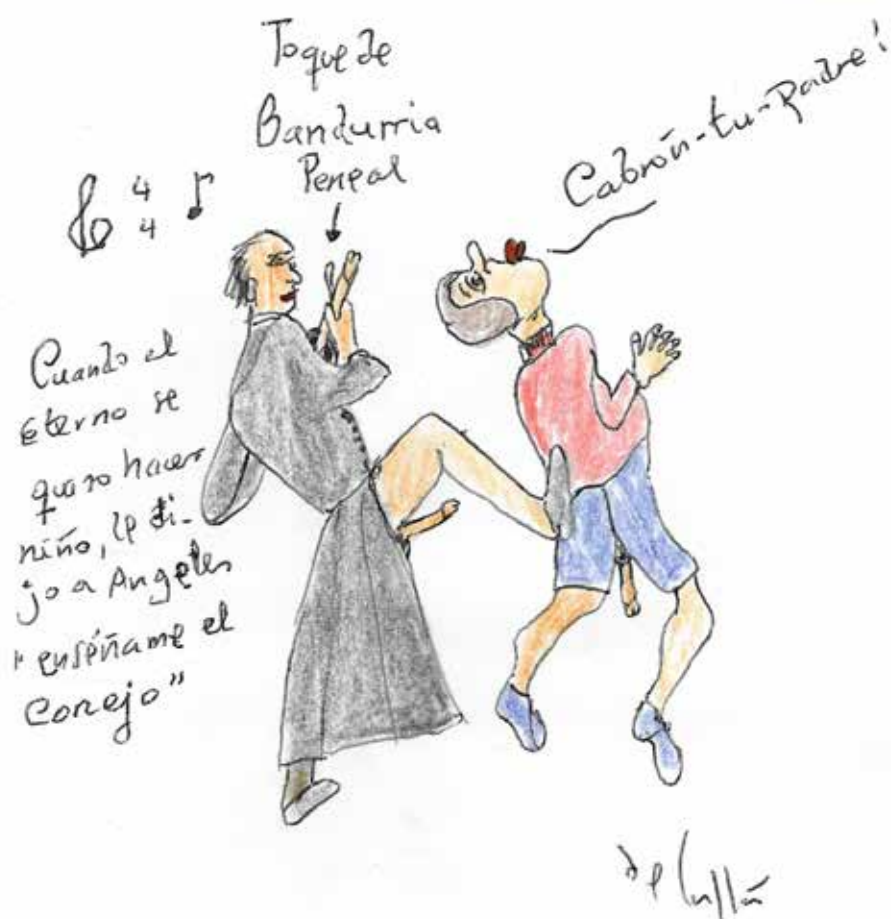 Toque de
Bandurria
Peneal
4
4
Cabrón-tu-padre!
Cuando el
Eterno se
quiso hacer
niño, le di-
jo a Angeles
"enséñame el
conejo"